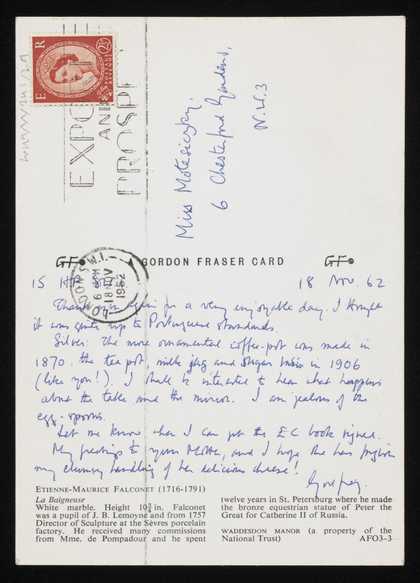 E R
2½D
EXPO
AND
PROSPE
Miss Motesiczky,
6 Chesterford Gardens,
N.W.3
LONDON S.W.1.
6 PM
18 NOV
1962
A GORDON FRASER CARD
GF GF
15 18 Nov. 62
Thank you again for a very enjoyable day. I thought
it was quite up to Portuguese standards.
Silver: The more ornamented coffee-pot was made in
1870. the tea pot, milk jug and sugar basin in 1906
(like you!). I shall be interested to hear what happens
about the table and the mirror. I am jealous of the
egg-spoons.
Let me know when I can get the EC book signed.
My greetings to your Mother, and I hope she has forgiven
my clumsy handling of her delicious cheese!
Godfrey.
ETIENNE-MAURICE FALCONET (1716-1791)
La Baigneuse
White marble. Height 10¾ in. Falconet
was a pupil of J. B. Lemoyne and from 1757
Director of Sculpture at the Sèvres porcelain
factory. He received many commissions
from Mme. de Pompadour and he spent
twelve years in St. Petersburg where he made
the bronze equestrian statue of Peter the
Great for Catherine II of Russia.
WADDESDON MANOR (a property of the
National Trust) AFO3-3